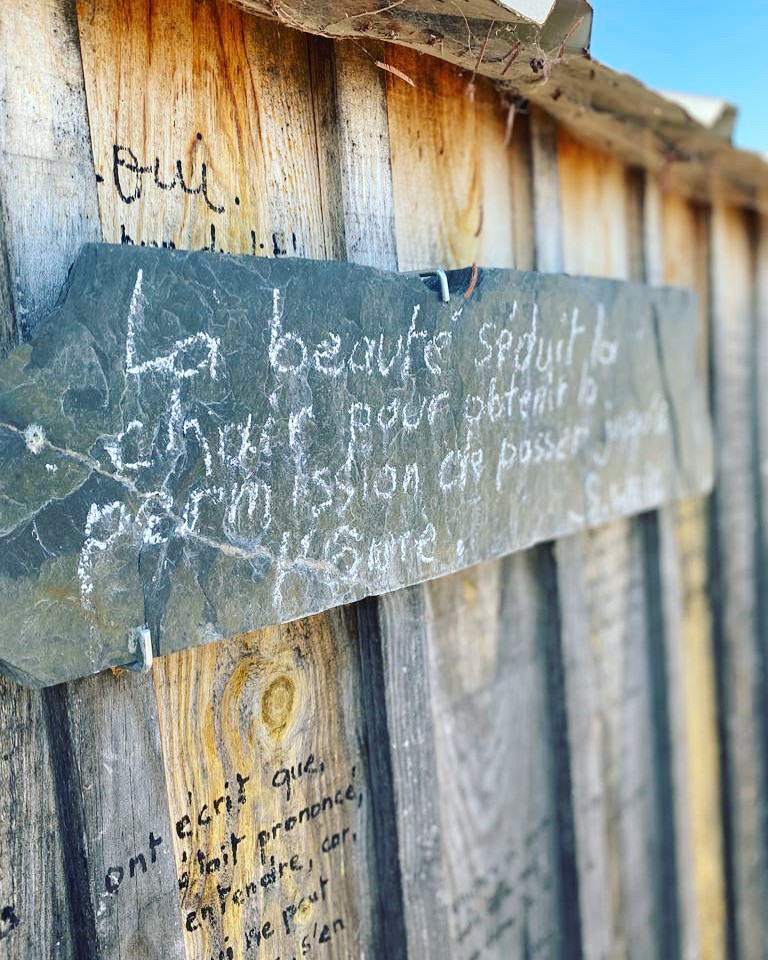 oui.
La beauté séduit la
chair pour obtenir la
permission de passer jusqu'à
l'âme.
S. Weil
ont écrit que,
était prononcé,
entendre, car,
ne peut
s'en